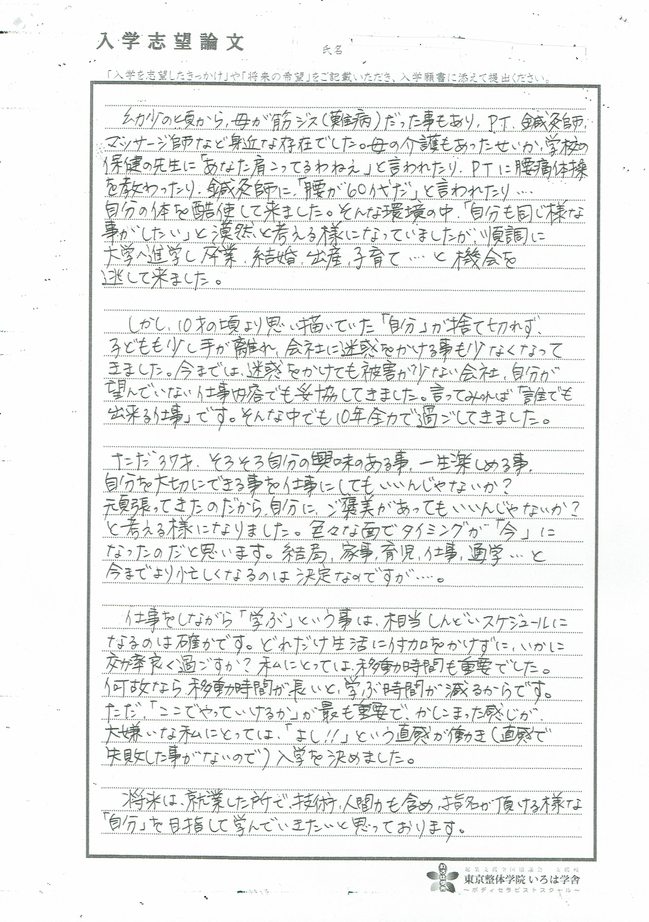 入学志望論文
氏名
「入学を志望したきっかけ」や「将来の希望」をご記載いただき、入学願書に添えて提出ください。
幼少の頃から、母が筋ジス(難病)だった事もあり、PT、鍼灸師、
マッサージ師など身近な存在でした。母の介護もあったせいか、学校の
保健の先生に「あなた肩こってるわねえ」と言われたり、PTに腰痛体操
を教わったり、鍼灸師に、「腰が60代だ」と言われたり…
自分の体を酷使して来ました。そんな環境の中、「自分も同じ様な
事がしたい」と漠然と考える様になっていましたが、順調に
大学へ進学し、卒業、結婚、出産、子育て…と機会を
逃して来ました。
しかし、10才の頃より思い描いていた「自分」が捨て切れず、
子どもも少し手が離れ、会社に迷惑をかける事も少なくなって
きました。今までは、迷惑をかけても被害が少ない会社、自分が
望んでいない仕事内容でも妥協してきました。言ってみれば「誰でも
出来る仕事」です。そんな中でも10年全力で過ごしてきました。
ただ37才、そろそろ自分の興味のある事、一生楽しめる事、
自分を大切にできる事を仕事にしてもいいんじゃないか?
頑張ってきたのだから、自分に、ご褒美があってもいいんじゃないか?
と考える様になりました。色々な面でタイミングが「今」に
なったのだと思います。結局、家事、育児、仕事、通学…と
今までより忙しくなるのは決定なのですが…。
仕事をしながら「学ぶ」という事は、相当しんどいスケジュールに
なるのは確かです。どれだけ生活に付加をかけずに、いかに
効率良く過ごすか?私にとっては、移動時間も重要でした。
何故なら移動時間が長いと、学ぶ時間が減るからです。
ただ、「ここでやっていけるか」が最も重要で、かしこまった感じが
大嫌いな私にとっては、「よし!!」という直感が働き(直感で
失敗した事がないので)入学を決めました。
将来は、就業した所で、技術、人間力も含め、指名が頂ける様な
「自分」を目指して学んでいきたいと思っております。
東京整体学院 いろは学舎
～ボディセラピストスクール～